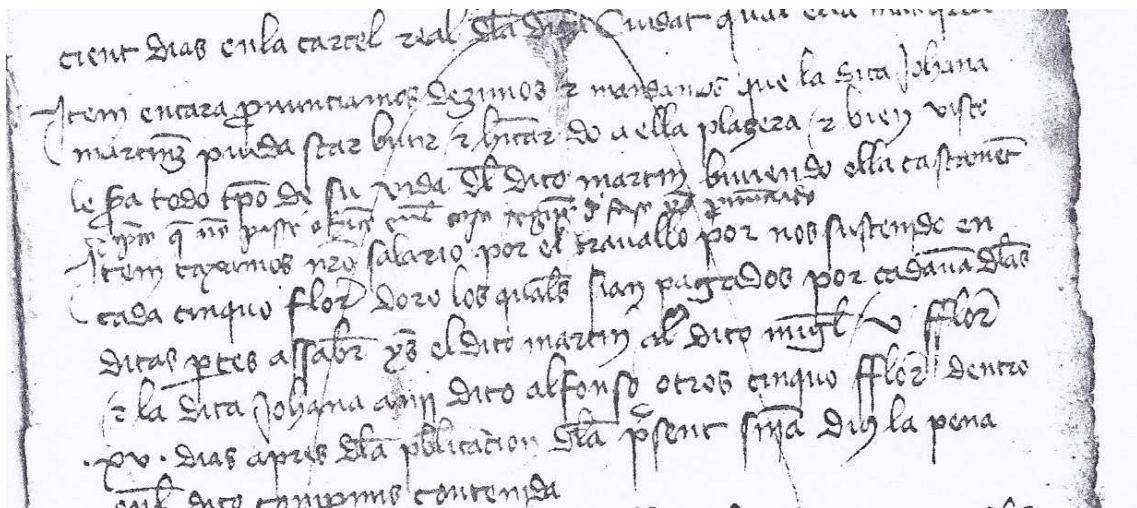 cient dias en la carcel real dela dita Ciudat qual en la
Item encara pronunciamos dezimos e mandamos que la dita Johana
martinez pueda star biuir e fincar do a ella plazera e bien visto
le sera todo tpo de su vida del dito martin biuiendo ella castament
Item taxamos nro salario por el travallo por nos sustenido en
cada cinquo flor doro los quales sian pagados por cadauna delas
ditas partes assaber ys el dito martin al dito migl v fflor
e la dita Johana a mi dito alfonso otros cinquo fflor dentro
.xv. dias apres dela publicacion dela present snia dius la pena
enel dito compromis contenida